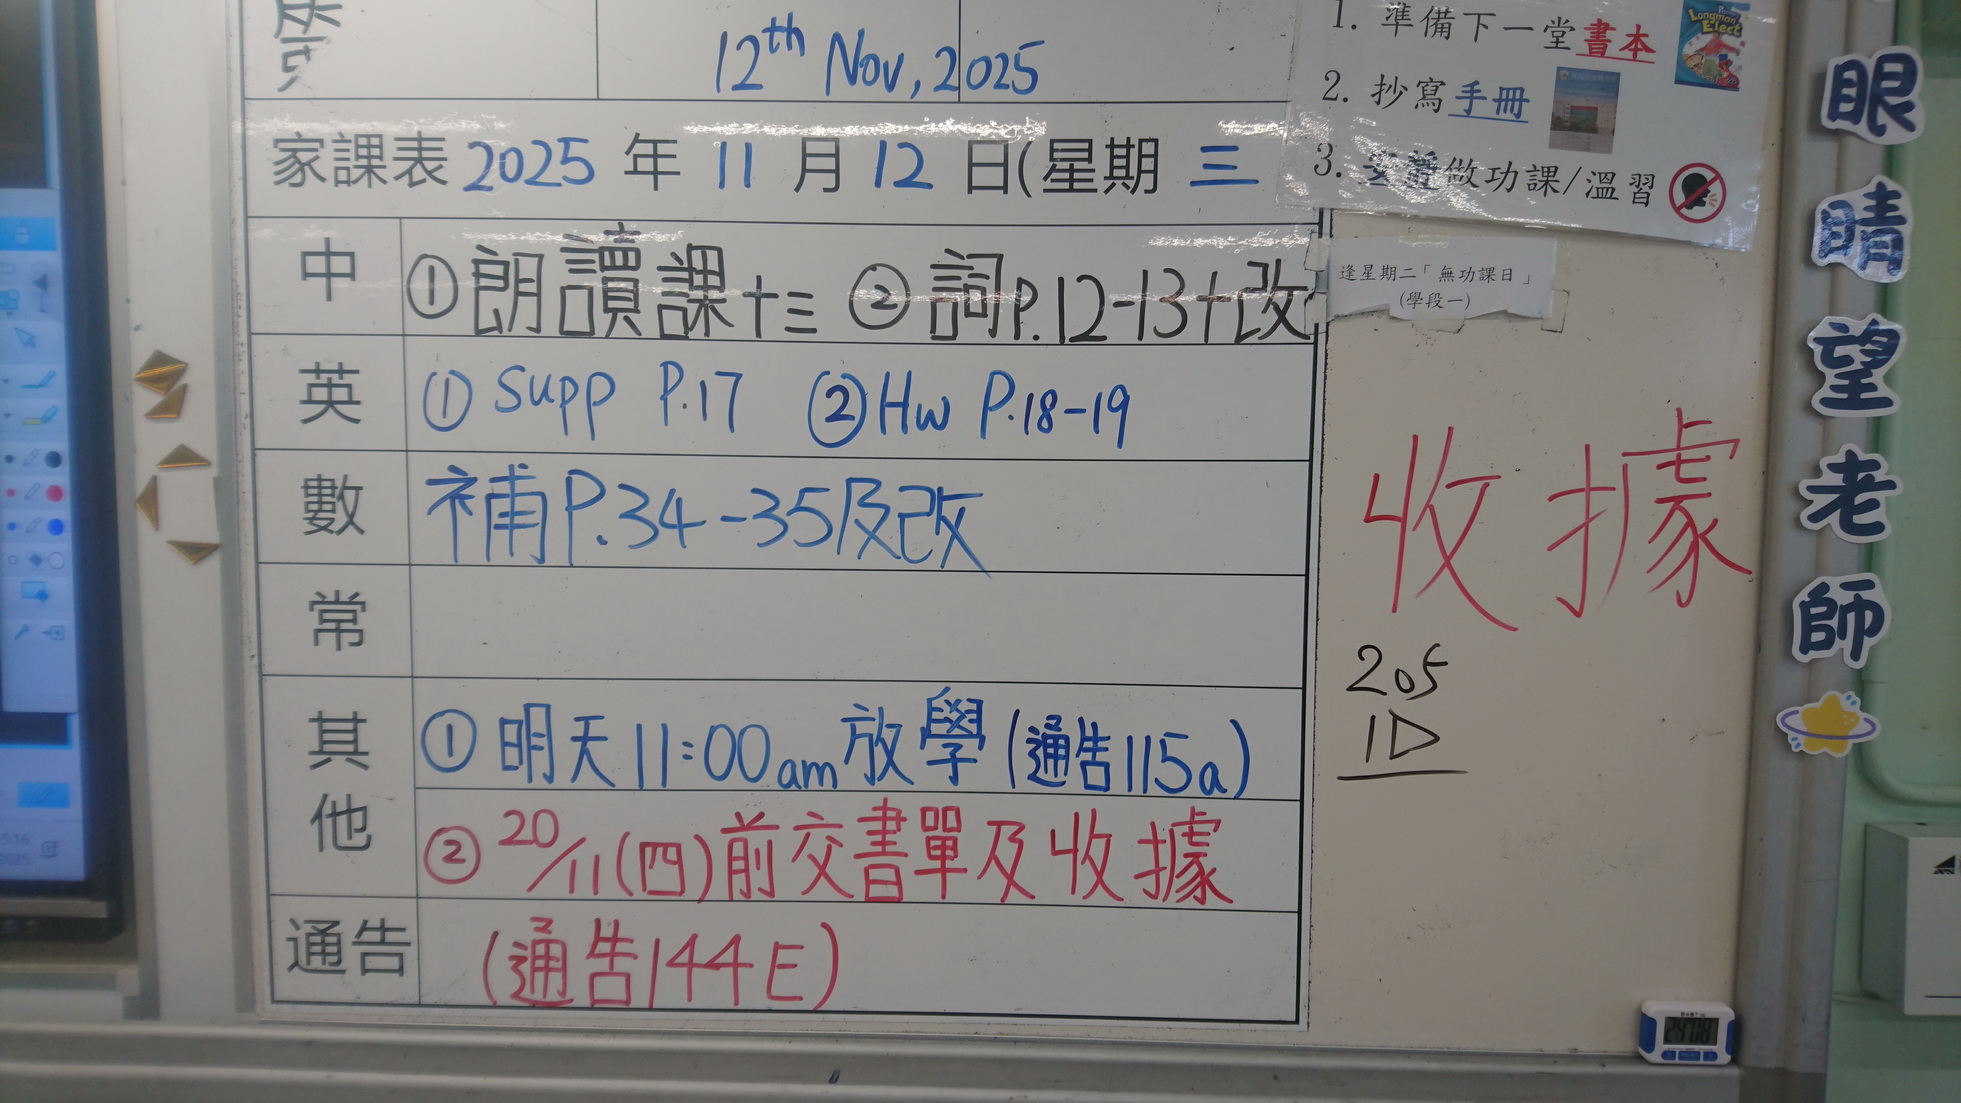 12th Nov, 2025
家課表 2025 年 11 月 12 日(星期 三
中 ①朗讀課十三 ②詞P.12-13+改
英 ① Supp P.17 ② HW P.18-19
數 補P.34-35及改
常
其他 ① 明天11:00am放學(通告115a)
② 20/11(四)前交書單及收據
通告 (通告144E)
1. 準備下一堂書本
Longman Elect
2. 抄寫手冊
3. 安靜做功課/溫習
逢星期二「無功課日」
(學段一)
收據
205
1D
眼睛望老師